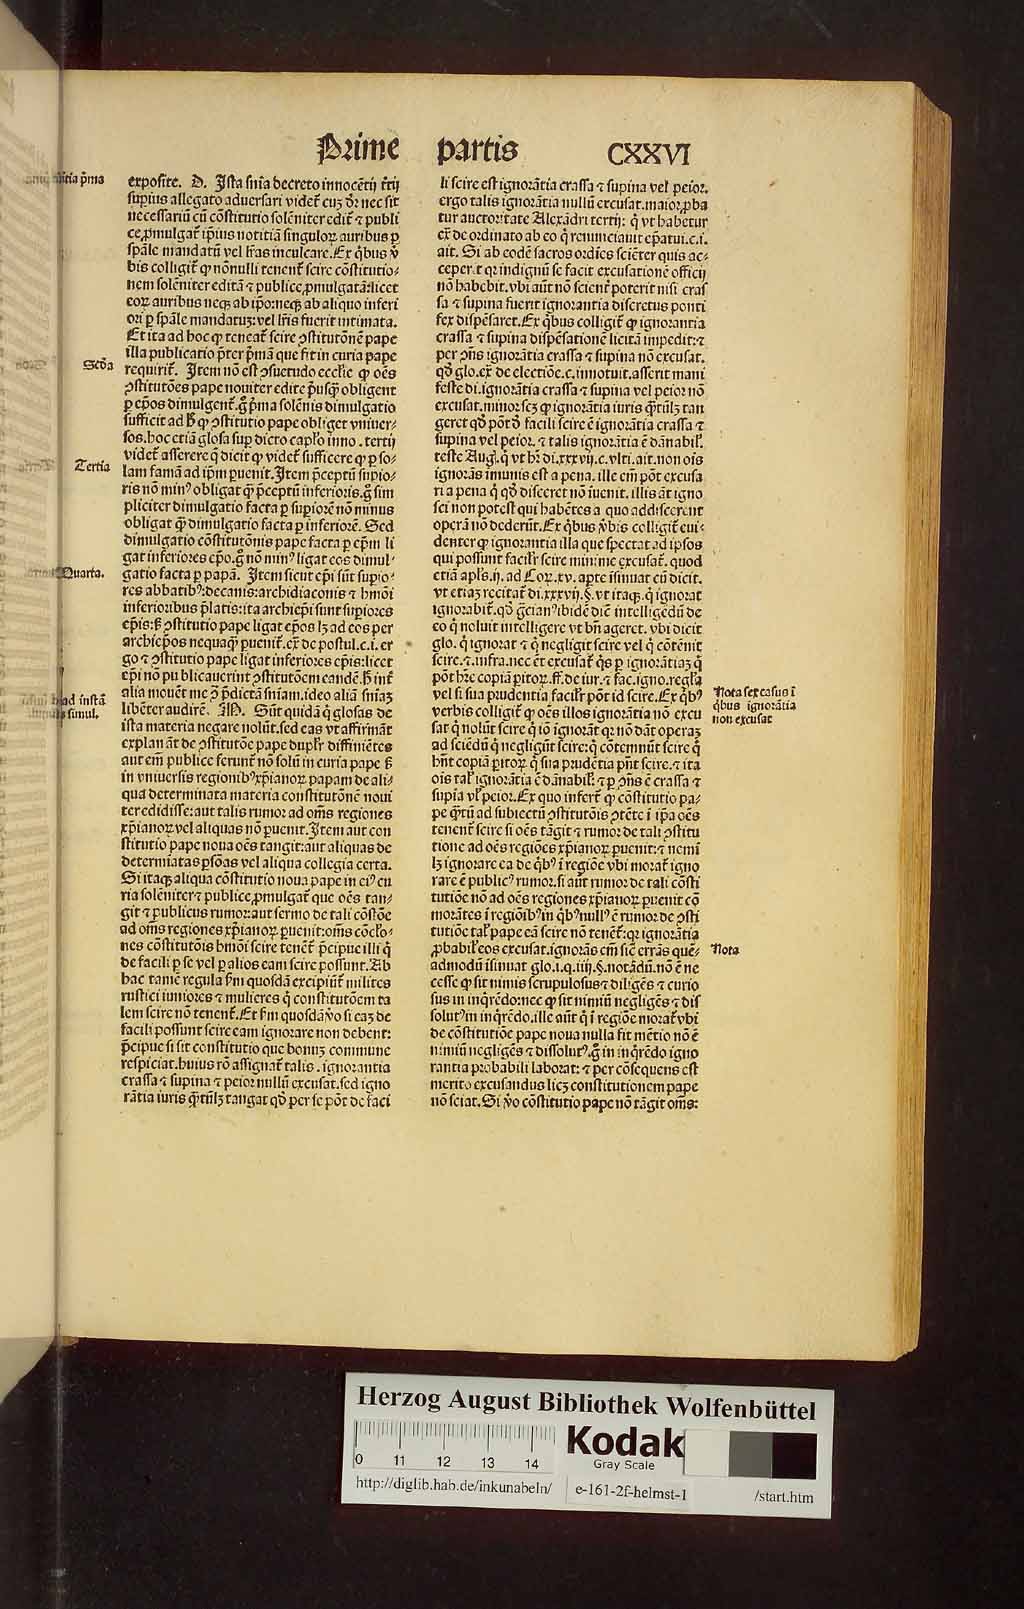 Prime partis CXXVI
exposite. D. Ista snīa decreto innocētij t̄tij
supius allegato aduersari videt̄ cuȝ dr̄ nec sit
necessariū cū cōstitutio solēniter edit̄ ⁊ publi
ce ꝓmulgat̄ ip̄ius notitiā singuloꝝ auribus ꝑ
sp̄ale mandatū vel l̄ras inculcare. Ex q̄bus v̄
bis colligit̄ ꝙ nōnulli tenent̄ scire cōstitutio⸗
nem solēniter editā ⁊ publice ꝓmulgatā: licet
eoꝝ auribus neqȝ ab ip̄o: neqȝ ab aliquo inferi
ori ꝑ sp̄ale mandatuȝ: vel l̄ris fuerit intimata.
Et ita ad hoc ꝙ teneat̄ scire ꝯstitutōnē pape
illa publicatio p̄ter p̄mā que fit in curia pape
requirit̄. Item nō est ꝯsuetudo eccl̄ie ꝙ oēs
ꝯstitutōes pape nouiter edite p̄usq̄ȝ obligent
ꝑ ep̄os diuulgent̄. g̊ p̄ma solēnis diuulgatio
sufficit ad h̄ ꝙ ꝯstitutio pape obliget vniuer⸗
sos. hoc etiā glosa sup dicto cap̄lo inno. tertij
videt̄ asserere q̄ dicit ꝙ videt̄ sufficere ꝙ ꝑ so⸗
lam famā ad ip̄m ꝑuenit. Item p̄ceptū supio⸗
ris nō minꝰ obligat q̄ȝ p̄ceptū inferioris. g̊ sim
pliciter diuulgatio facta ꝑ supiorē nō minus
obligat q̄ȝ diuulgatio facta ꝑ inferiorē. Sed
diuulgatio cōstitutōnis pape facta ꝑ ep̄m li
gat inferiores ep̄o. g̊ nō minꝰ ligat eos diuul⸗
gatio facta ꝑ papā. Item sicut ep̄i sūt supio⸗
res abbatibꝰ: decanis: archidiaconis ⁊ hmōi
inferioribus p̄latis: ita archiep̄i sunt supiores
ep̄is: sꝫ ꝯstitutio pape ligat ep̄os lȝ ad eos per
archiep̄os nequaqȝ ꝑuenit. ex̄ de postul. c. i. er
go ⁊ ꝯstitutio pape ligat inferiores ep̄is: licet
ep̄i nō publicauerint ꝯstitutōem eandē. h̄ int̄
alia mouēt me ꝯ̄ p̄dictā sniam. ideo aliā sniaȝ
libēter audirē. M. Sūt quidā q̄ glosas de
ista materia negare nolūt. sed eas vt affirmāt
explanāt de ꝯstitutōe pape dupl̄r diffiniētes
aut em̄ publice ferunt̄ nō solū in curia pape sꝫ
in vniuersis regionibꝰ xp̄ianoꝝ papam de ali⸗
qua determinata materia constitutōnē noui
ter edidisse: aut talis rumor ad om̄s regiones
xp̄ianoꝝ vel aliquas nō ꝑuenit. Item aut con
stitutio pape noua oēs tangit: aut aliquas de
determiatas ꝑsōas vel aliqua collegia certa.
Si itaqȝ aliqua cōstitutio noua pape in eiꝰ cu
ria solēniter ⁊ publice ꝓmulgat̄ que oēs tan⸗
git ⁊ publicus rumor: aut sermo de tali cōstōe
ad om̄s regiones xp̄ianoꝝ ꝑuenit: om̄s cōclo⸗
nes cōstitutōis hmōi scire tenent̄ p̄cipue illi q̄
de facili ꝑ se vel ꝑ alios eam scire possunt. Ab
hac tamē regula ẜm quosdā excipiūt̄ milites
rustici iuniores ⁊ mulieres q̄ constitutōem ta
lem scire nō tenent̄. Et ẜm quosdā v̊o si eaȝ de
facili possunt scire eam ignorare non debent:
p̄cipue si sit constitutio que bonuȝ commune
respiciat. huius rō assignat̄ talis. ignorantia
crassa ⁊ supina ⁊ peior nullū excusat. sed igno
rātia iuris q̄ȝtūlȝ tangat qd̄ per se pōt de faci
li scire est ignorātia crassa ⁊ supina vel peior.
ergo talis ignorātia nullū excusat. maior ꝓba
tur auctoritate Alexādri tertij: q̄ vt habetur
ex̄ de ordinato ab eo q̄ renunciauit ep̄atui. c. i.
ait. Si ab eodē sacros ordies sciēter quis ac⸗
ceperit qꝛ indignū se facit excusationē officij
nō habebit. vbi aūt nō scient̄ poterit nisi cras
sa ⁊ supina fuerit ignorantia discretus ponti
fex dispēsaret. Ex q̄bus colligit̄ ꝙ ignorantia
crassa ⁊ supina dispēsationē licitā impedit: ⁊
per ꝯn̄s ignorātia crassa ⁊ supina nō excusat.
qd̄ glo. ex̄ de electiōe. c. innotuit. asserit mani
feste di. ignorātia crassa ⁊ supina vel peior nō
excusat. minor scȝ ꝙ ignorātia iuris q̄ȝtūlȝ tan
geret qd̄ pōt d̄ facili scire ē ignorātia crassa ⁊
supina vel peior. ⁊ talis ignorātia ē dānabil̄.
teste Aug̊. q̄ vt hr̄ di. xxxvij. c. vlti. ait. non ois
ignorās imunis est a pena. ille em̄ pōt excusa
ri a pena q̄ qd̄ disceret nō iuenit. illis āt igno
sci non potest qui habētes a quo addiscerent
operā nō dederūt. Ex q̄bus v̄bis colligit̄ eui⸗
denter ꝙ ignorantia illa que spectat ad ipsos
qui possunt facil̄r scire minime excusat. quod
etiā apl̄s. ij. ad Coꝝ. xv. apte isinuat cū dicit.
vt etiaȝ recitat̄ di. xxxvij. §. vt itaqȝ. q̄ ignorat
ignorabit̄. qd̄ gr̄cianꝰ ibidē dic̄ intelligēdū de
eo q̄ noluit intelligere vt bn̄ ageret. vbi dicit
glo. q̄ ignorat ⁊ q̄ negligit scire vel q̄ cōtēnit
scire. ⁊. infra. nec ēt excusat̄ q̄s ꝑ ignorātiaȝ q̄
pōt hr̄e copiā ꝑitoꝝ. ff. de iur. ⁊ fac. igno. regl̄a
vel si sua prudentia facil̄r pōt id scire. Ex q̄bꝰ
verbis colligit̄ ꝙ oēs illos ignorātia nō excu
sat q̄ nolūt scire q̄ iō ignorāt qꝛ nō dāt operaȝ
ad sciēdū q̄ negligūt scire: q̄ cōtemnūt scire q̄
hn̄t copiā ꝑitoꝝ q̄ sua prudētia pn̄t scire. ⁊ ita
ois tal̄ ignorātia ē dānabil̄: ⁊ ꝑ ꝯn̄s ē crassa ⁊
supīa vl̄ peior. Ex quo infert̄ ꝙ cōstitutio pa⸗
pe q̄ȝtū ad subiectū ꝯstitutōis ꝯtēte ī ip̄a oēs
tenent̄ scire si oēs tāgit ⁊ rumor de tali ꝯstitu
tione ad oēs regiōes xp̄ianoꝝ ꝑuenit: ⁊ nemī
lȝ ignorare ea de q̄bꝰ ī regiōe vbi morat̄ igno
rare ē publicꝰ rumor. si aūt rumor de tali cōsti
tutiōe nō ad oēs regiones xp̄ianoꝝ ꝑuenit cō
morātes ī regiōibꝰ in q̄bꝰ nullꝰ ē rumor de ꝯsti
tutiōe tal̄ pape eā scire nō tenēt̄: qꝛ ignorātia
ꝓbabil̄ eos excusat. ignorās em̄ sic̄ errās que⸗
admodū isinuat glo. i. q. iiij. §. notādū. nō ē ne
cesse ꝙ sit nimis scrupulosus ⁊ diligēs ⁊ curio
sus in inq̄rēdo: nec ꝙ sit nimiū negligēs ⁊ dis
solutꝰ in inq̄rēdo. ille aūt q̄ ī regiōe morat̄ vbi
de cōstitutiōe pape noua nulla fit mētio nō ē
nimiū negligēs ⁊ dissolutꝰ. g̊ in inq̄rēdo igno
rantia probabili laborat: ⁊ per cōsequens est
merito excusandus licȝ constitutionem pape
nō sciat. Si v̊o cōstitutio pape nō tāgit om̄s:
Scd̄a
Tertia
Quarta.
ad instā
simul.
Nota sex casus ī
q̄bus ignorātia
non excusat
Nota
Herzog August Bibliothek Wolfenbüttel
0 11 12 13 14
Kodak
Gray Scale
http://diglib.hab.de/inkunabeln/ e-161-2f-helmst-1 /start.htm